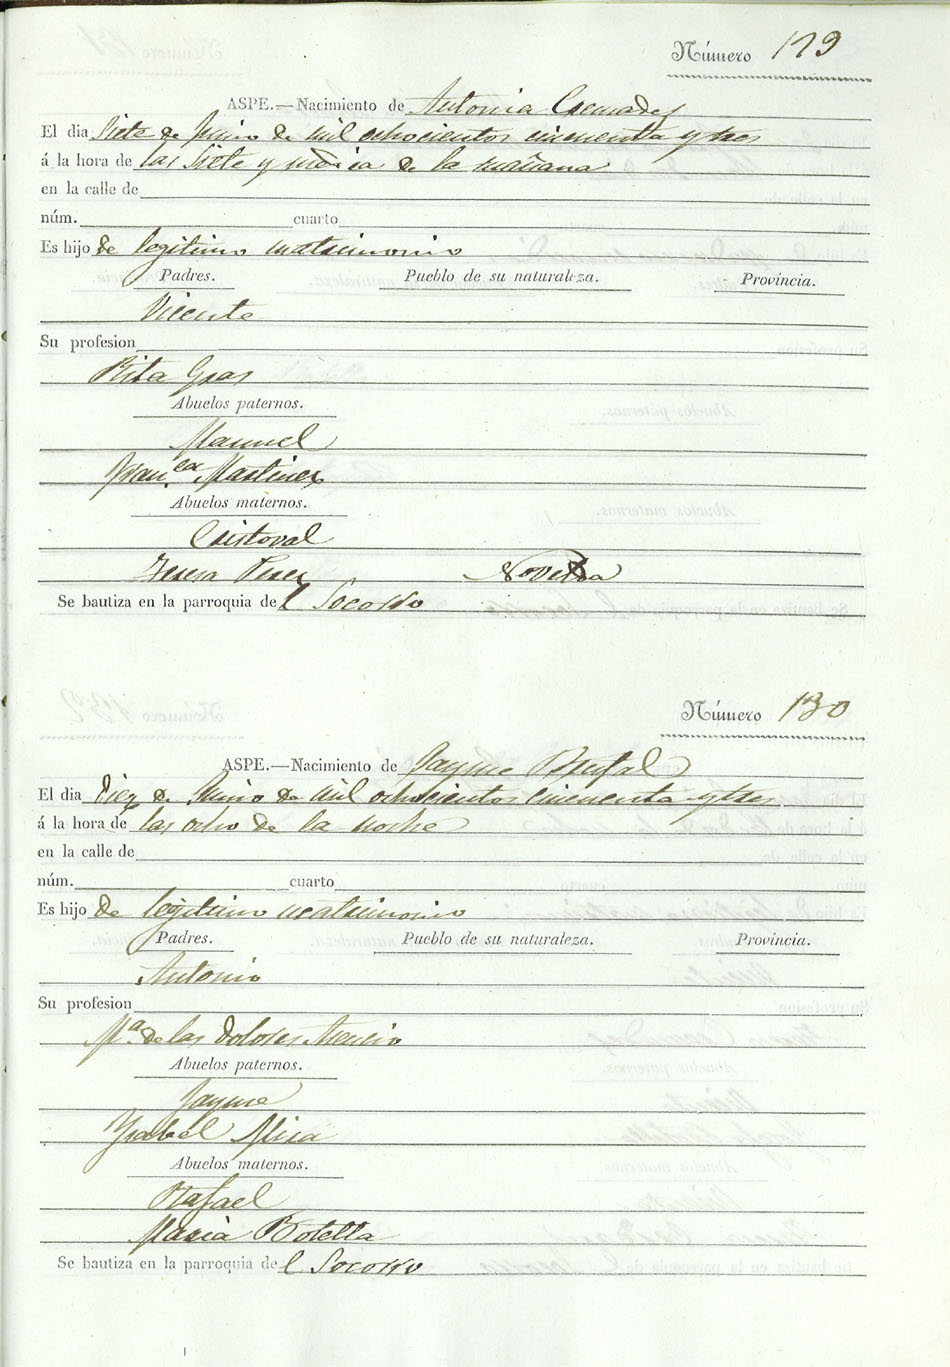 Número 129
ASPE.—Nacimiento de Antonia Cremades
El dia Siete de Junio de mil ochocientos cincuenta y tres
á la hora de las Siete y média de la mañana
en la calle de
núm. cuarto
Es hijo de legitimo matrimonio
Padres. Pueblo de su naturaleza. Provincia.
Vicente
Su profesion
Rita Gras
Abuelos paternos.
Manuel
Fran.ca Martinez
Abuelos maternos.
Cristoval
Teresa Perez Novelda
Se bautiza en la parroquia del Socorro
Número 130
ASPE.—Nacimiento de Jayme
El dia Diez de Junio de mil ochocientos cincuenta y tres
á la hora de las ocho de la noche
en la calle de
núm. cuarto
Es hijo de legitimo matrimonio
Padres. Pueblo de su naturaleza. Provincia.
Antonio
Su profesion
Mª de las Dolores Asencio
Abuelos paternos.
Jayme
Ysabel Mira
Abuelos maternos.
Rafael
Maria Botella
Se bautiza en la parroquia del Socorro